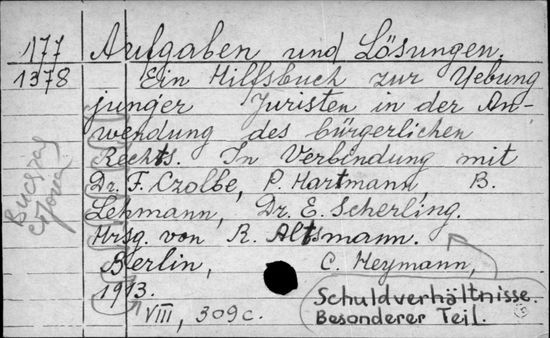 177
1378
Aufgaben und Lösungen.
Ein Hilfsbuch zur Uebung
junger Juristen in der An-
wendung des bürgerlichen
Rechts. In Verbindung mit
Dr. F. Czolbe, P. Hartmann, B.
Lehmann, Dr. E. Scherling.
Hrsg. von R. Altsmann.
Berlin, C. Heymann,
1913.
VIII, 309 c.
Schuldverhältnisse.
Besonderer Teil.